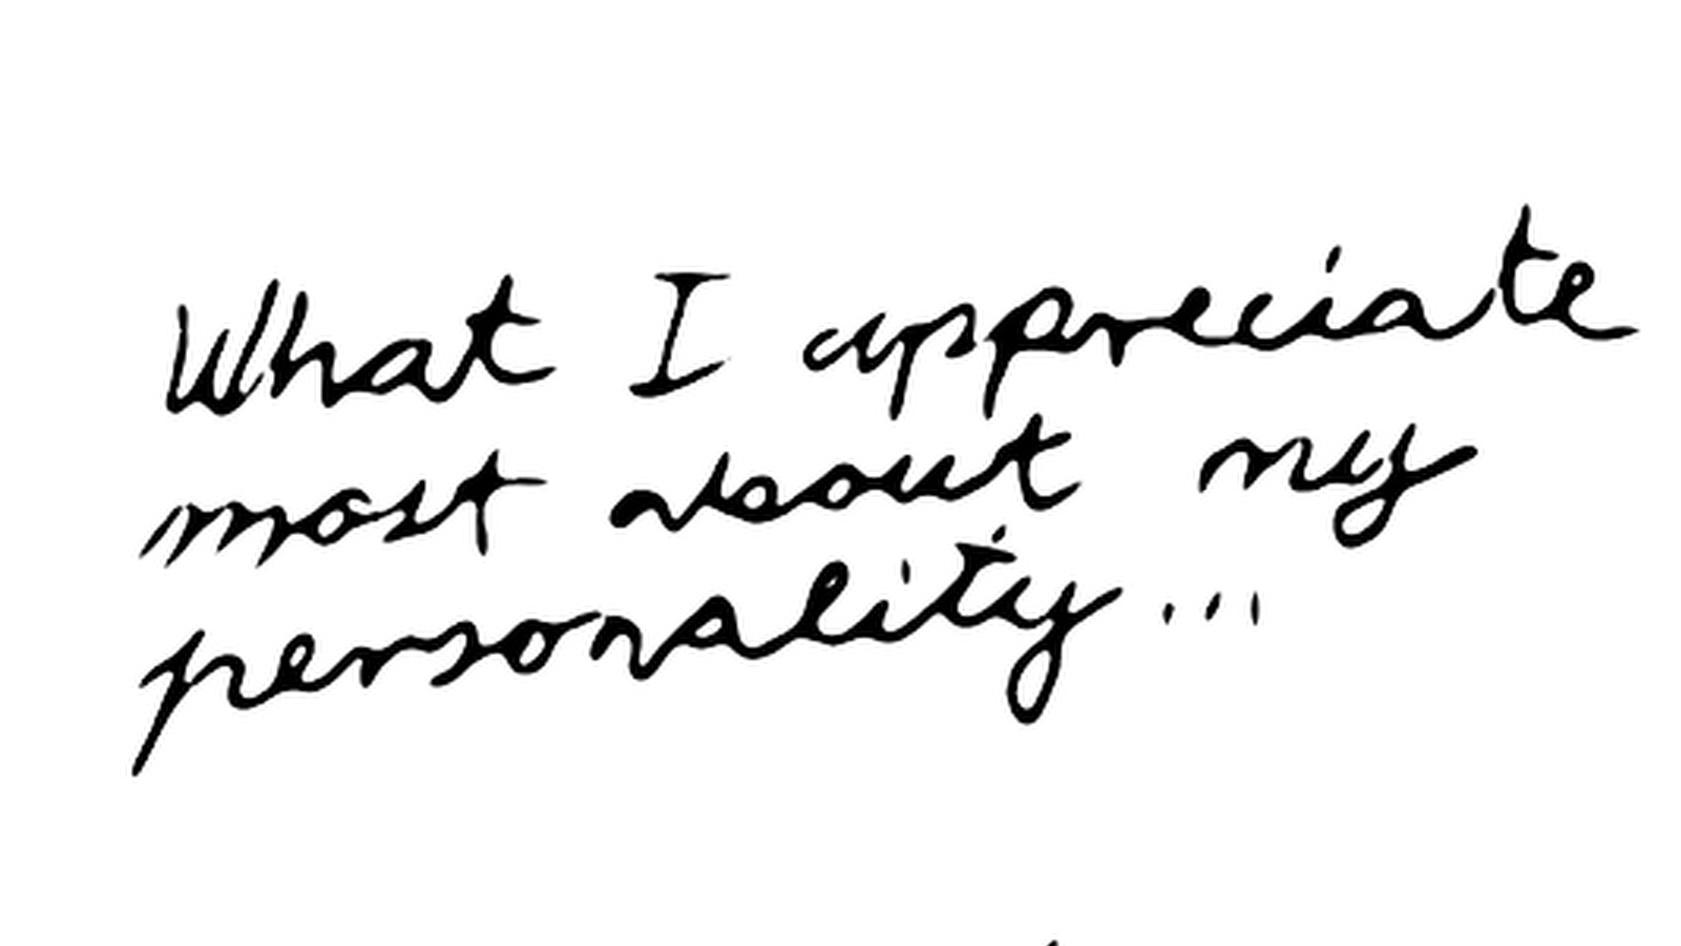 What I appreciate
most about my
personality...